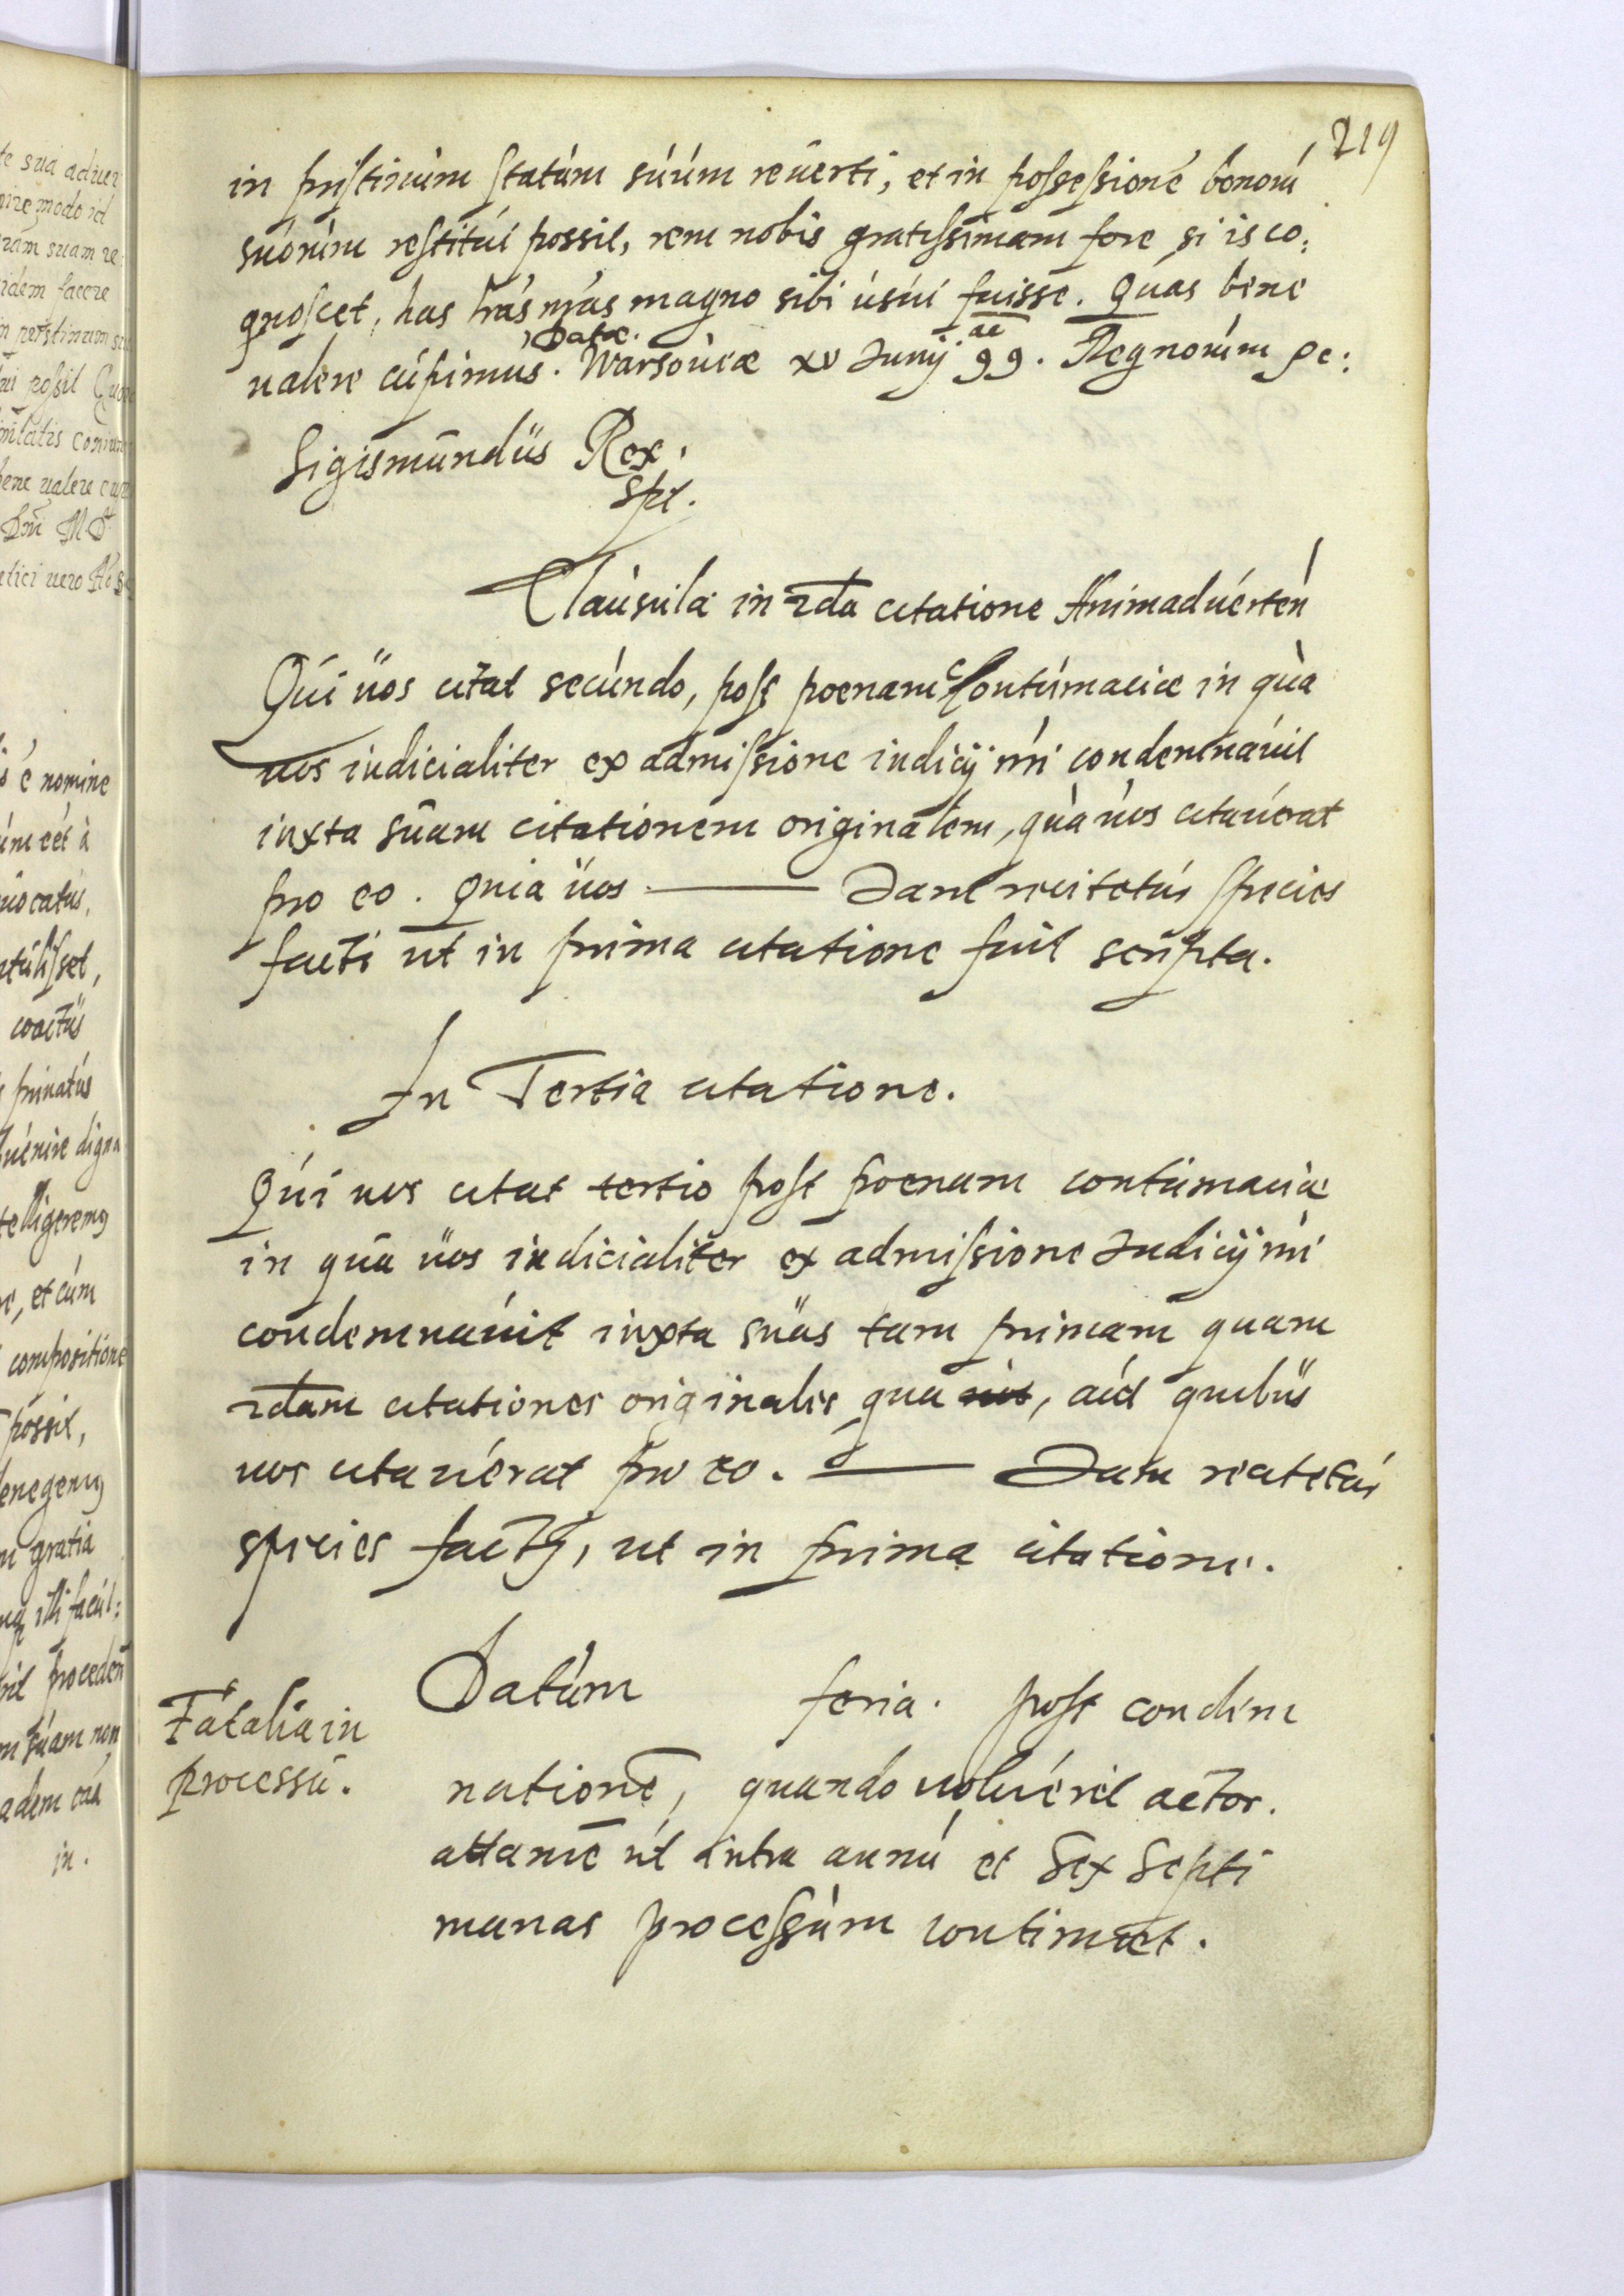 219
in pristinum statum suum reuerti, et in possessione bonorũ
suorum restitui possit, rem nobis gratissimam fore, si is co:
gnoscet, has lras nras magno sibi usui fuisse. Quas bene
Datæ.
ualere cupimus. Warsouiæ xv Junij 99. Regnorum
Sigismundus Rex.
Clausula in 2da citatione Animaduerten
Qui uos citat secundo, post poenam Contumaciæ in qua
uos iudicialiter ex admissione iudicij nri condemnauit
iuxta suam citationem originalem, qua uos citauerat
pro eo. Quia uos ——— Jam recitetur species
facti ut in prima citatione fuit scripta.
In Tertia citatione.
Qui uos citat tertio post poenam contumaciæ
in qua uos iudicialiter ex admissione Judicij nri
condemnauit iuxta suas tam primam quam
2dam citationes originales qua, aut quibus
uos citauerat pro eo. ——— Jam recitetur
species facti, ut in prima citatione.
Fatalia in
processu.
Datum feria. post condem
nationẽ, quando uoluerit actor.
attamẽ ut intra annũ et sex septi
manas processum continuet.
te sua aduer
modo id
ram suam re
idem facere
possit
bene ualere
uero
e nomine
uocatus,
coactus
priuatus
digna
et cum
compositione
possit,
gratia
illi facul:
proceden
suam non
in.